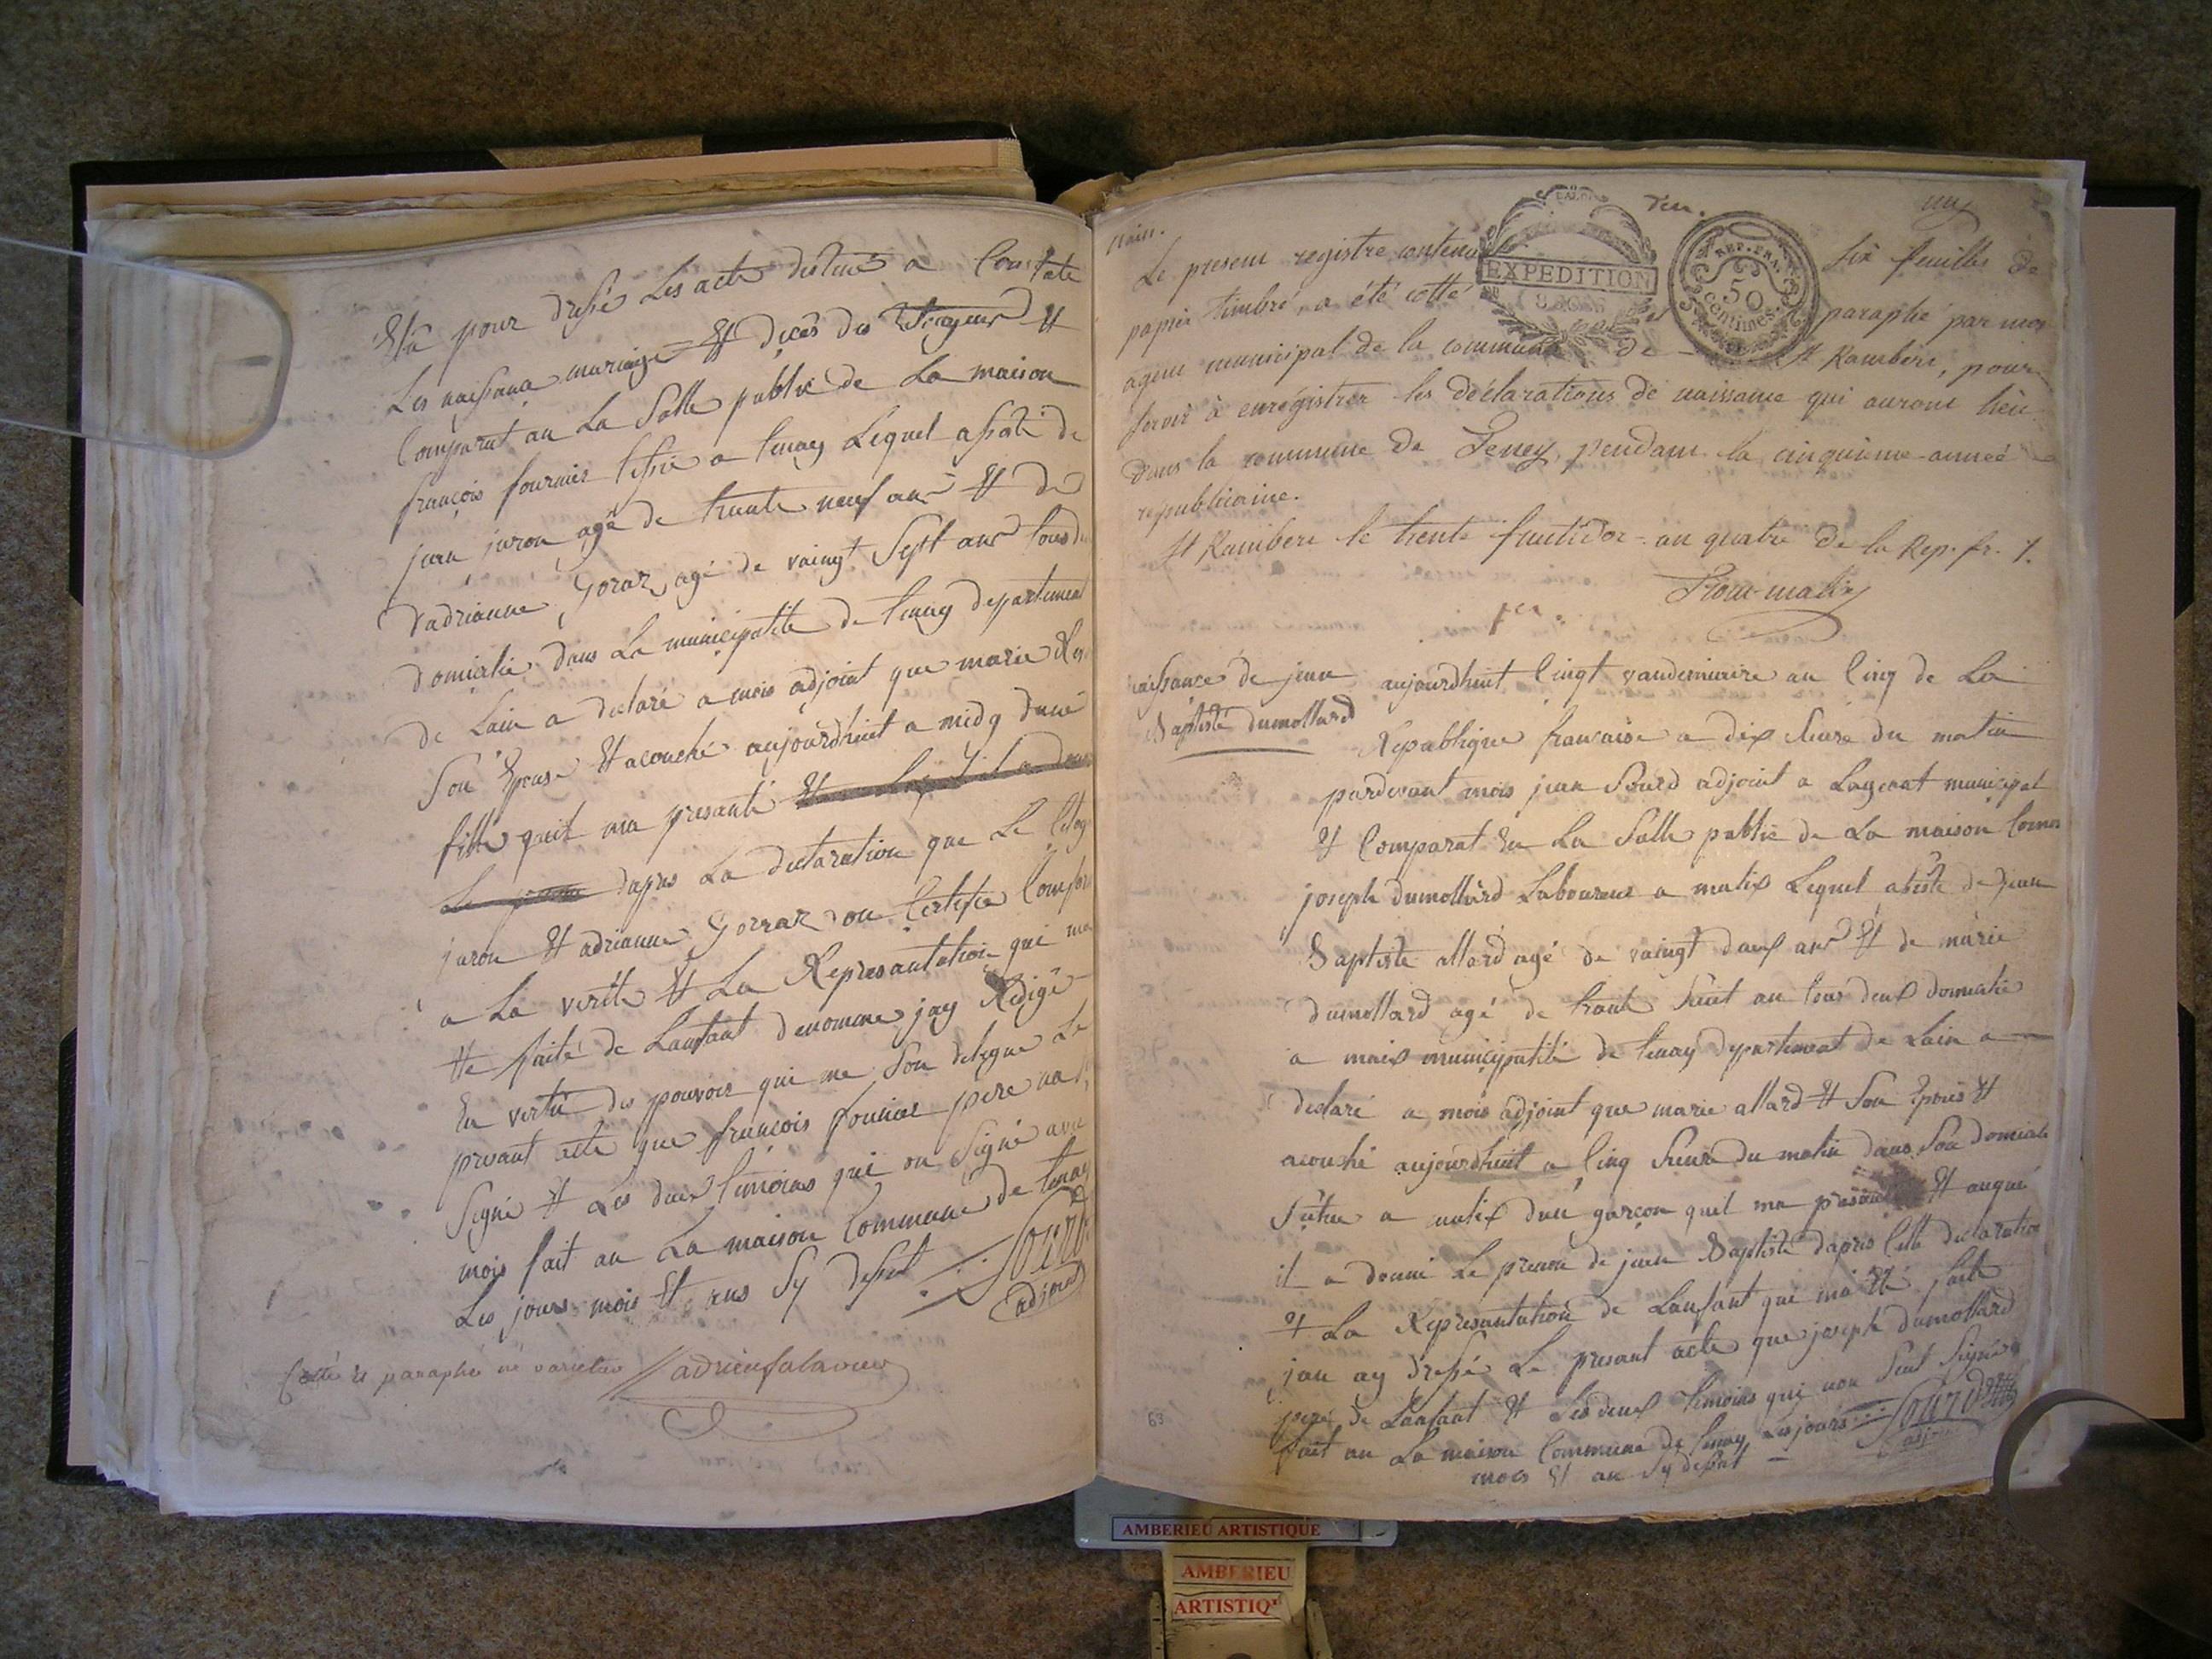 Eta pour dresé Les acte destiné a Constate
Les naissance mariage Et decés des Citoyens Et
Comparut an La Salle public de La maison
françois fournier a tenay Lequel assisté de
jean juron agé de trante neuf ans Et de
dadrianne Goraz agé de vaingt Sept ans tous deu
domicilié dans La municipalité de tenay departement
de Lain a declaré a mois adjoint que marie
Son Epouse Et acouché aujourdhuit a midy dune
fille quit ma presanté Et
Le dapres La declaration que Le Citoy
juron Et adrianne Gorraz on Certifié Comform
a La verité Et La Represantation qui ma
Ete faite de Lanfant denommé jay Redigé
En vertu des pouvoir qui me Son delegue Le
presant acte que françois fournier pere na
Signé Et Les deux temoins qui on Signé avec
mois fait an La maison Commune de tenay
Les jours mois Et ans Sy desut Sourd
adjoint
Cotté et paraphé ne varietur
nain.
Le present registre contenant six feuilles de
papier timbré, a été cotté et paraphé par moi
agent municipal de la commune de St Rambert, pour
servir à enregistrer les déclarations de naissance qui auront lieu
dans la commune de Teney, pendant la cinquième année
républicaine.
St Rambert le trente fructidor an quatre de la Rep. fr. 1.
EXPEDITION
REP. FRA.
50
centimes.
per
naissance de jean
Baptiste dumollard
aujourdhuit Cingt vandemiaire an Cinq de La
Republique francaise a dix heure du matin
pardevant mois jean Sourd adjoint a Lagent municipal
Et Comparut En La Salle public de La maison Comm
joseph dumollard Laboureur a malix Lequel asisté de jean
Baptiste allard agé de vaingt deux ans Et de marie
dumollard agé de trante huit an tous deux domicilié
a malix municipalité de tenay departement de Lain a
declaré a mois adjoint que marie allard Et Son Epouse Et
acouché aujourdhuit a Cinq heure du matin dans Son domicile
situe a malix dun garçon quil ma presanté Et auque
il a donné Le prenon de jean Baptiste dapres Cette declaration
Et La Represantation de Lanfant qui ma Eté faite
jan ay dressé Le presant acte que joseph dumollard
pere de Lanfant Et Les deux temoins qui non Seut Signé
fait an La maison Commune de tenay Les jours Sourd
mois Et an Sy desut adjoint
63
AMBERIEU ARTISTIQUE
AMBERIEU
ARTISTIQ